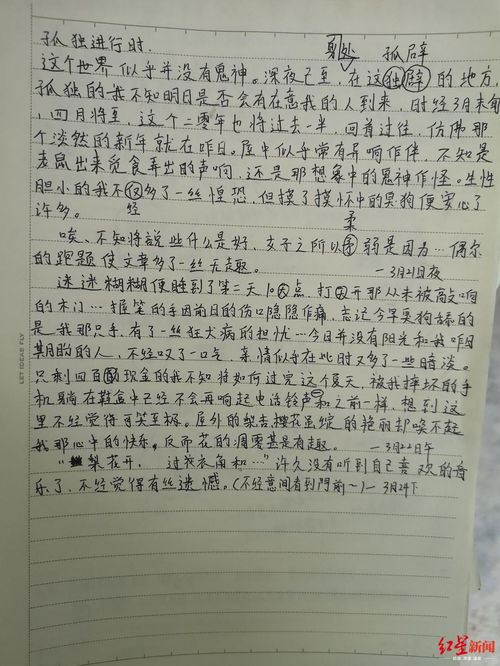 孤独进行时.
身处 孤僻
这个世界似乎并没有鬼神。深夜已至,在这独僻的地方,
孤独的我不知明日是否会有在意我的人到来,时经3月末旬
,四月将至,这个二零年也将过去一半,回首过往,仿佛那
个淡然的新年就在昨日。屋中似乎常有异响作伴,不知是
老鼠出来觅食弄出的声响,还是那想象中的鬼神作怪。生性
胆小的我不仅多了一丝惶恐,但摸了摸怀中的黑狗便安心了
许多。
经
柔
唉、不知将说些什么是好、女子之所以 弱是因为…偶尔
的跑题使文章多了一丝无趣。
—3月21日夜
迷迷糊糊便睡到了第二天10 点,打 开那从未被敲响
的木门…握笔的手因前日的伤口隐隐作痛,忘记今早黑狗舔的
是我那只手,有了一丝狂犬病的担忧…今日并没有阳光和我昨日
期盼的人,不经叹了一口气,亲情似乎在此时又多了一些暗淡。
只剩四百 现金的我不知将如何过完这个夏天,被我摔坏的手
机躺在鞋盒中已经不会再响起电话铃声和之前一样,想到这
里不经觉得可笑至极。屋外的梨杏樱花显绽的艳丽却唤不起
我那心中的快乐,反而花的凋零甚是有趣。 —3月22日午
“梨花开, 过我衣角和…”许久没有听到自己喜欢的音
乐了,不经觉得有丝遗憾。(不经意间看到門前~)—3月24下
LET IDEAS FLY
红星新闻